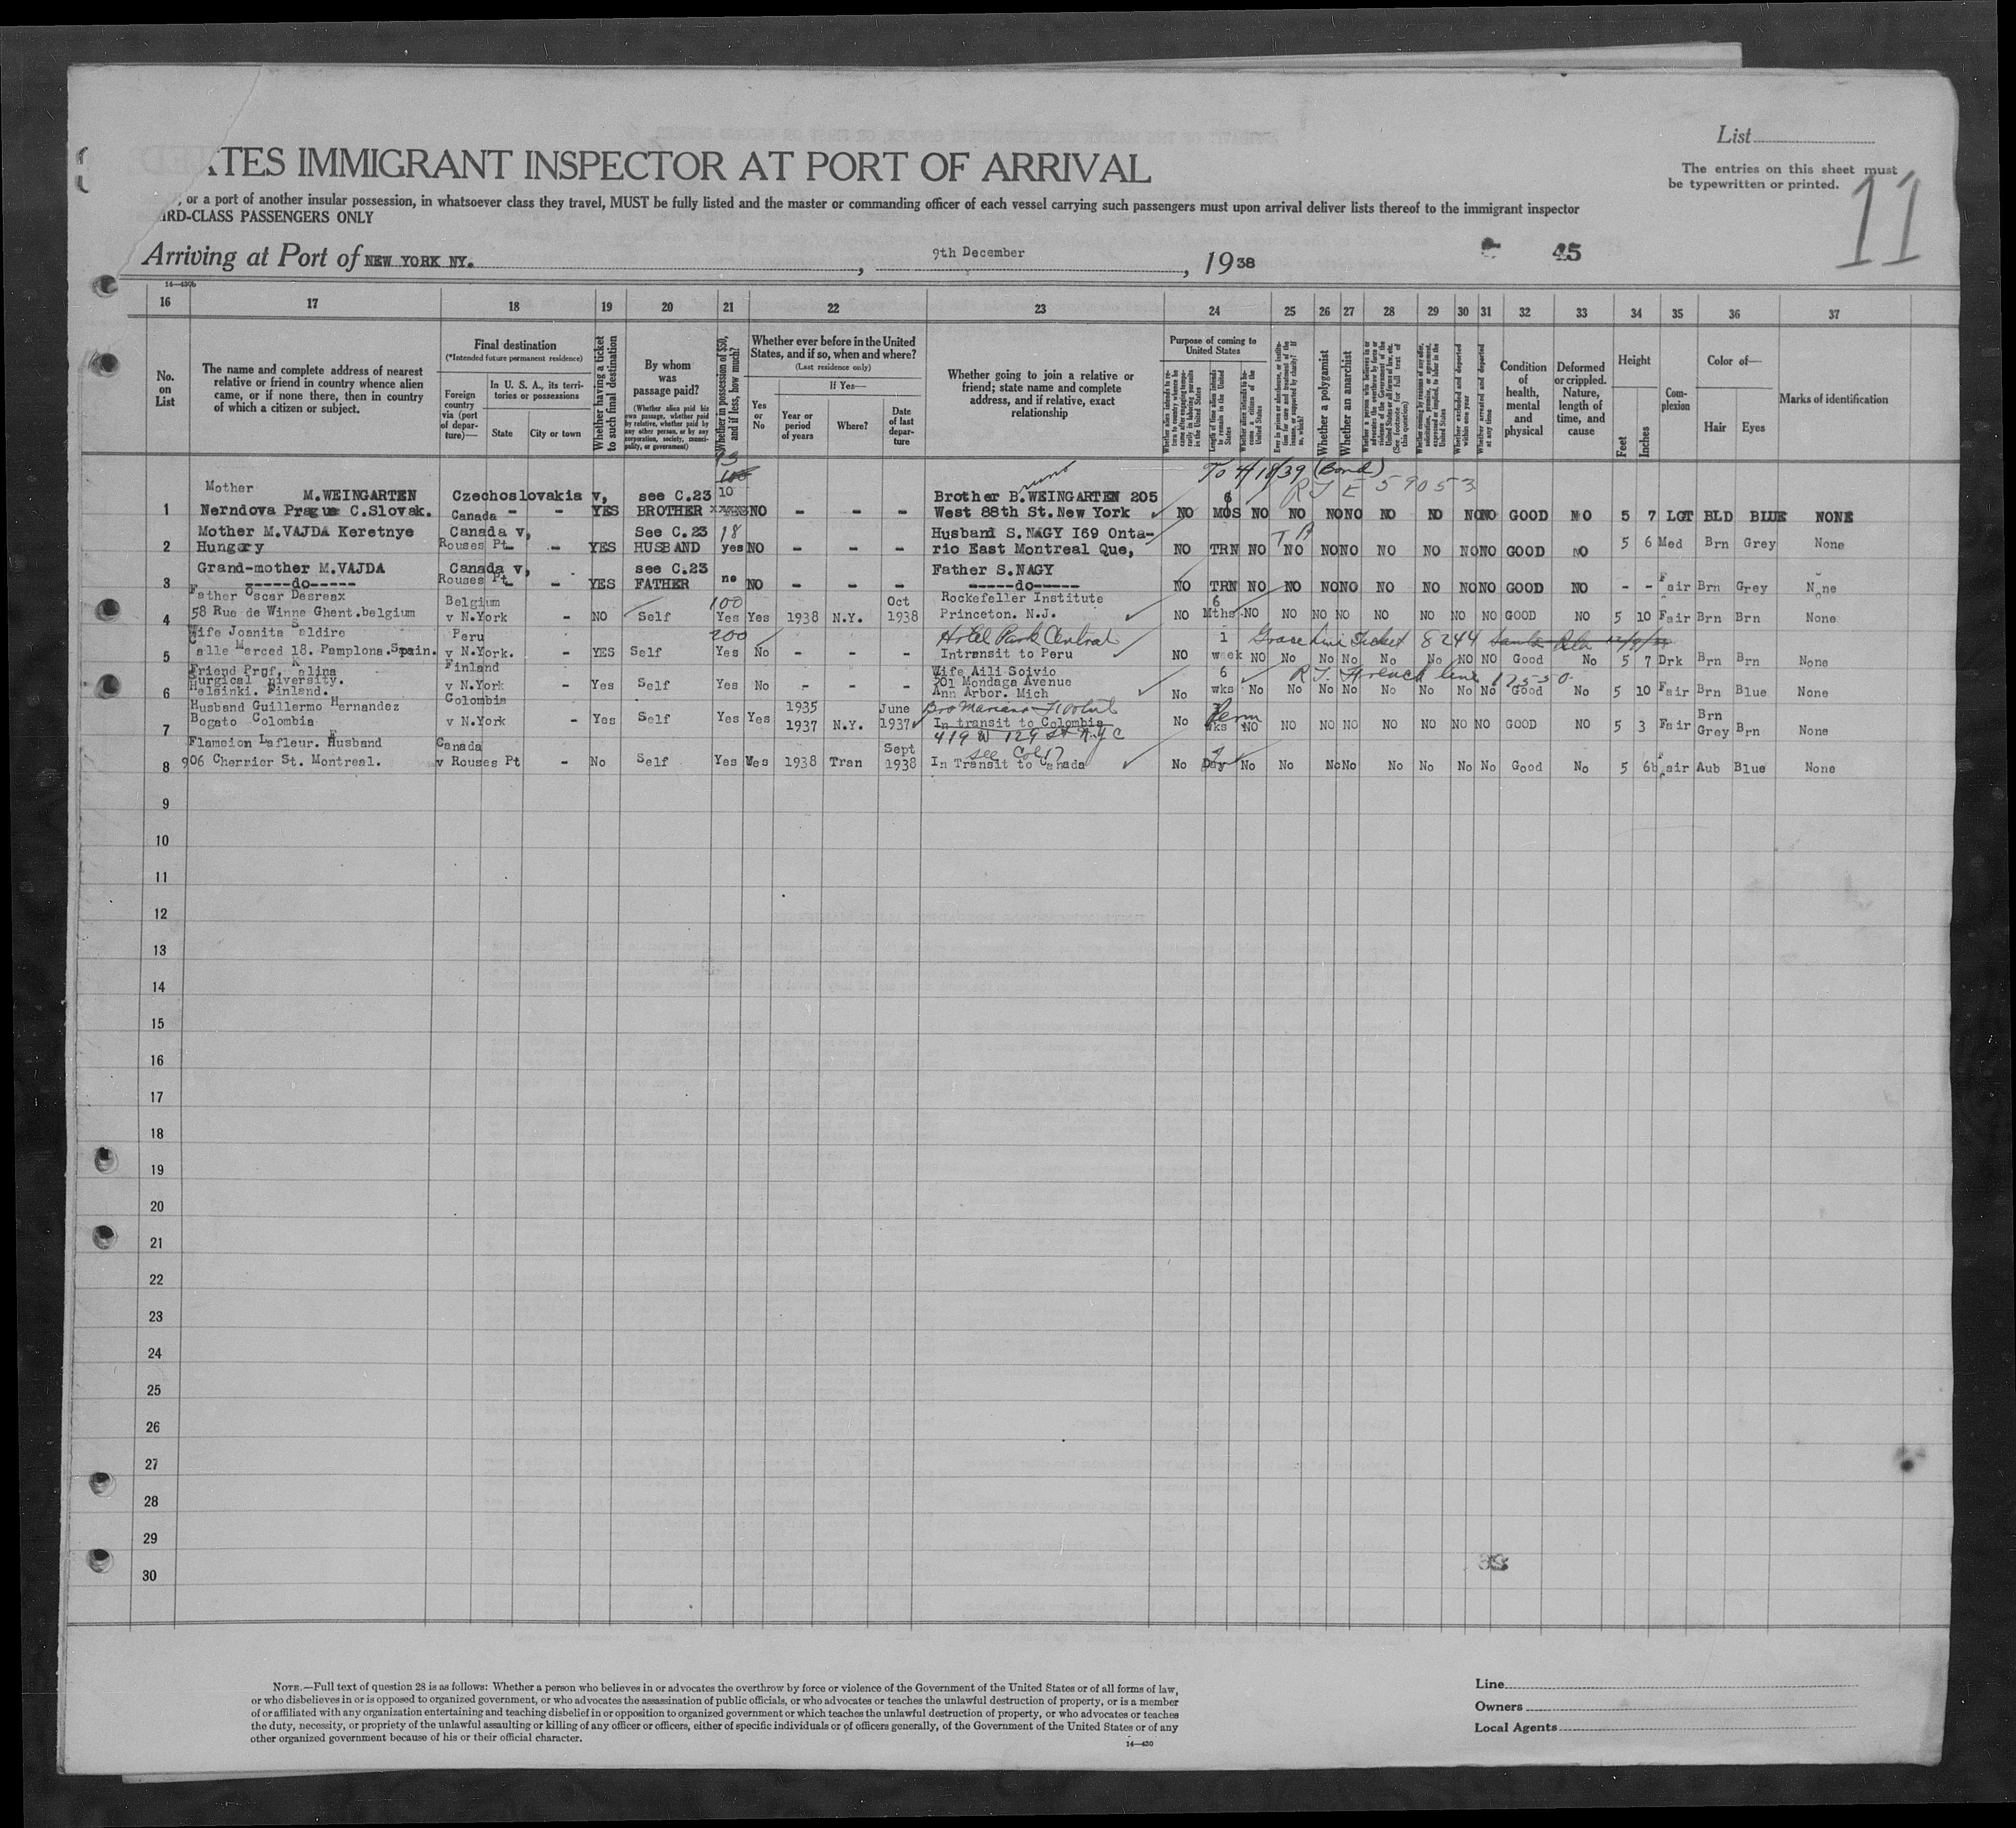 List
The entries on this sheet must
be typewritten or printed.
11
TES IMMIGRANT INSPECTOR AT PORT OF ARRIVAL
, or a port of another insular possession, in whatsoever class they travel, MUST be fully listed and the master or commanding officer of each vessel carrying such passengers must upon arrival deliver lists thereof to the immigrant inspector
IRD-CLASS PASSENGERS ONLY
Arriving at Port of NEW YORK NY. , 9th December , 1938 45
14—430b
16 17 18 19 20 21 22 23 24 25 26 27 28 29 30 31 32 33 34 35 36 37
No. on List
The name and complete address of nearest relative or friend in country whence alien came, or if none there, then in country of which a citizen or subject.
Final destination
(*Intended future permanent residence)
Foreign country via (port of departure)—
In U. S. A., its territories or possessions
State City or town
Whether having a ticket to such final destination
By whom was passage paid?
(Whether alien paid his own passage, whether paid by relative, whether paid by any other person, or by any corporation, society, municipality, or government)
Whether in possession of $50, and if less, how much?
Whether ever before in the United States, and if so, when and where?
(Last residence only)
Yes or No
If Yes—
Year or period of years Where? Date of last departure
Whether going to join a relative or friend; state name and complete address, and if relative, exact relationship
Purpose of coming to United States
Length of time alien intends to remain in the United States
Whether a polygamist
Whether an anarchist
Whether arrested and deported at any time
Condition of health, mental and physical
Deformed or crippled. Nature, length of time, and cause
Height
Feet Inches
Complexion
Color of—
Hair Eyes
Marks of identification
To 4/18/39 (Bond)
RT E 59053
Mother M.WEINGARTEN Czechoslovakia v, see C.23 10 Brother B.WEINGARTEN 205 6
1 Nerndova Prague C.Slovak. Canada - - YES BROTHER NO - - - West 88th St.New York NO MOS NO NO NO NO NO NO NO NO GOOD NO 5 7 LGT BLD BLUE NONE
Mother M.VAJDA Keretnye Canada v, See C.23 18 Husband S.NAGY I69 Onta-
2 Hungary Rouses Pt - - YES HUSBAND yes NO - - - rio East Montreal Que, NO TRN NO NO NO NO NO NO NO NO GOOD NO 5 6 Med Brn Grey None
Grand-mother M.VAJDA Canada v, see C.23 Father S.NAGY
3 -----do----- Rouses Pt - - YES FATHER no NO - - - -----do----- NO TRN NO NO NO NO NO NO NO NO GOOD NO - - Fair Brn Grey None
Father Oscar Desreax Belgium 100 Oct Rockefeller Institute 6
4 58 Rue de Winne Ghent.belgium v N.York - NO Self Yes Yes 1938 N.Y. 1938 Princeton. N.J. NO Mths NO NO NO NO NO NO NO NO GOOD NO 5 10 Fair Brn Brn None
Wife Joanita Saldire Peru 200 Hotel Park Central 1 Grace Line Ticket 8244
5 Calle Merced 18. Pamplona.Spain. v N.York. - YES Self Yes No - - - Intransit to Peru NO week NO No No No No No NO NO Good No 5 7 Drk Brn Brn None
Friend Prof. Kalina Finland Wife Aili Soivio 6 R.T. French line
Surgical University. 301 Mondaga Avenue
6 Helsinki. Finland. v N.York - Yes Self Yes No - - - Ann Arbor. Mich No wks No No No No No No No No Good No 5 10 Fair Brn Blue None
Husband Guillermo Hernandez Colombia 1935 June Perm
7 Bogato Colombia v N.York - Yes Self Yes Yes 1937 N.Y. 1937 In transit to Colombia No wks NO NO NO NO NO NO NO NO GOOD NO 5 3 Fair Brn Grey Brn None
419 W 129 St N.Y.C
Flamcion Lafleur. Husband Canada Sept see Col 17
8 906 Cherrier St. Montreal. v Rouses Pt - No Self Yes Yes 1938 Tran 1938 In Transit to Canada No Day No No No No No No No No Good No 5 6½ Fair Aub Blue None
9
10
11
12
13
14
15
16
17
18
19
20
21
22
23
24
25
26
27
28
29
30
NOTE.—Full text of question 28 is as follows: Whether a person who believes in or advocates the overthrow by force or violence of the Government of the United States or of all forms of law,
or who disbelieves in or is opposed to organized government, or who advocates the assassination of public officials, or who advocates or teaches the unlawful destruction of property, or is a member
of or affiliated with any organization entertaining and teaching disbelief in or opposition to organized government or which teaches the unlawful destruction of property, or who advocates or teaches
the duty, necessity, or propriety of the unlawful assaulting or killing of any officer or officers, either of specific individuals or of officers generally, of the Government of the United States or of any
other organized government because of his or their official character.
14—430
Line
Owners
Local Agents